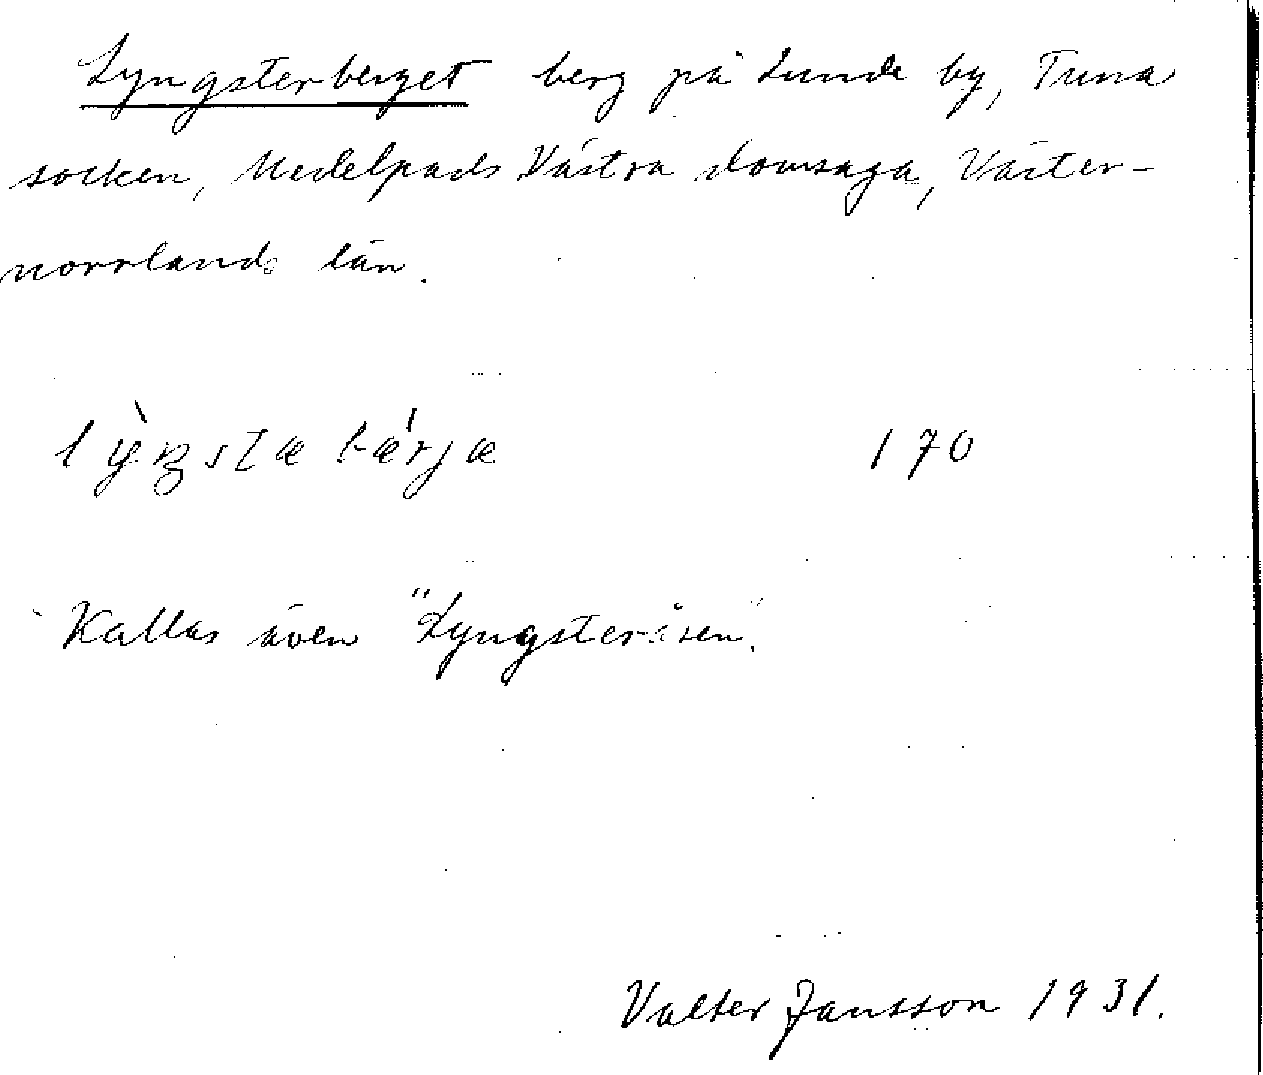 Lyngsterberget berg på Lunde by, Tuna
socken, Medelpads Västra domsaga, Väster-
norrlands län.
lỳŋstæbærjæ 170
Kallas även "Lyngsteråsen".
Valter Jansson 1931.